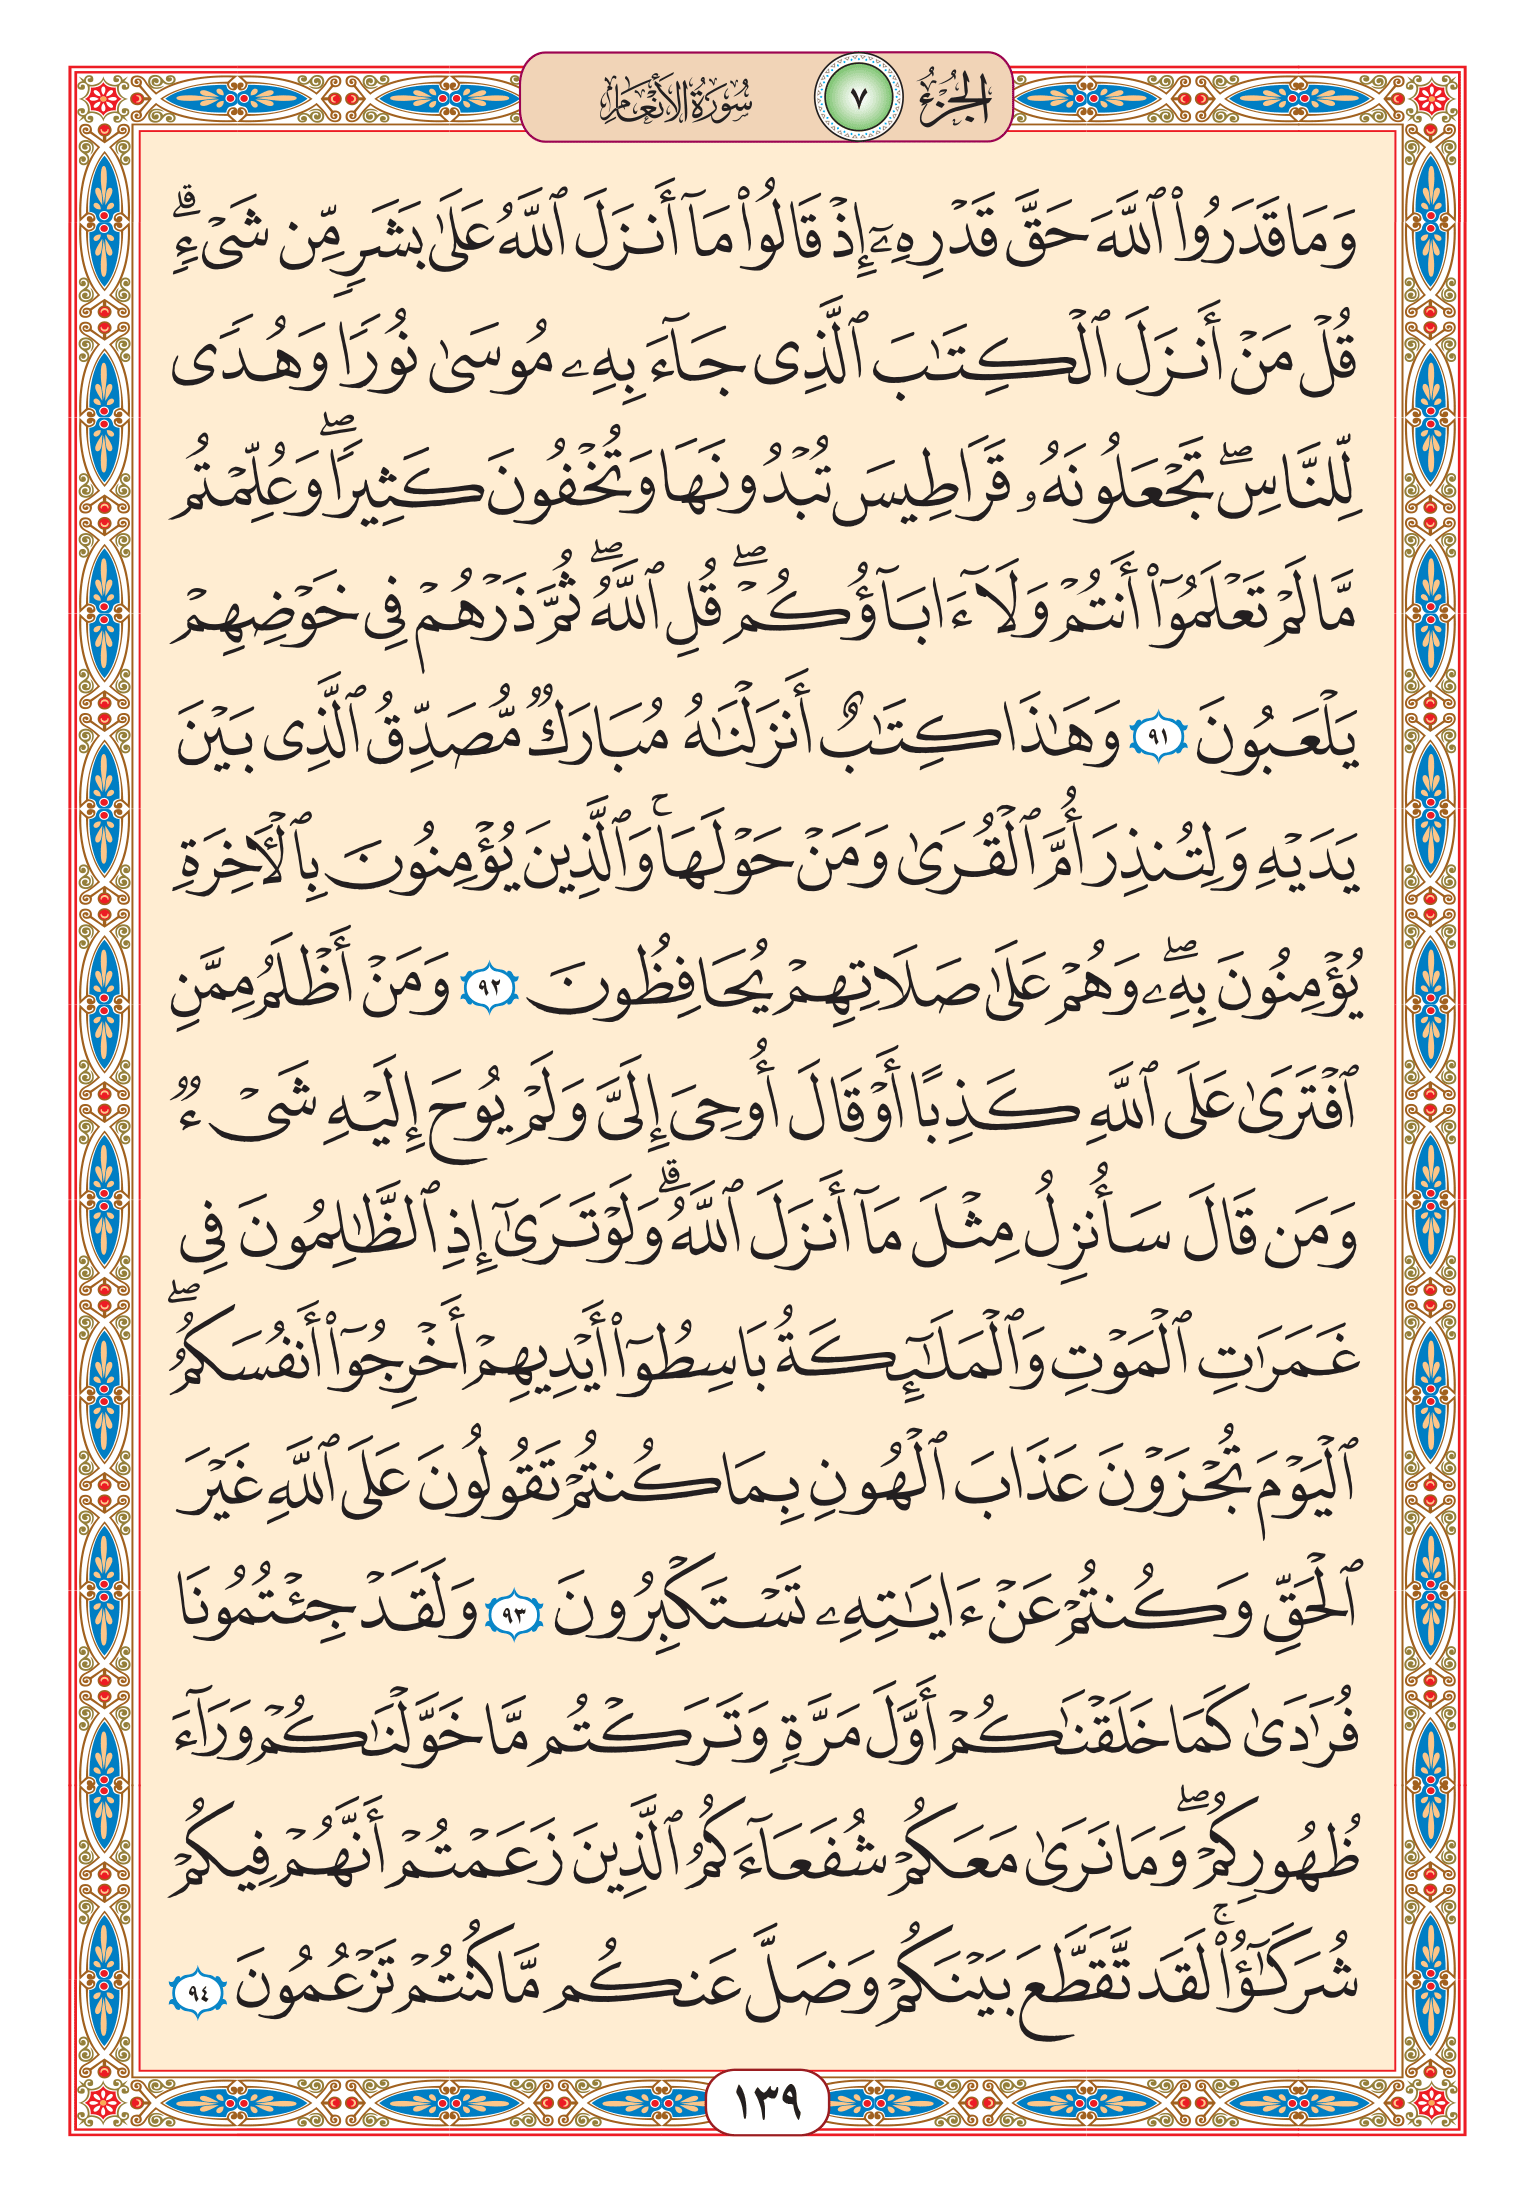 الجزء ٧ سورة الأنعام
وَمَا قَدَرُوا۟ ٱللَّهَ حَقَّ قَدْرِهِۦٓ إِذْ قَالُوا۟ مَآ أَنزَلَ ٱللَّهُ عَلَىٰ بَشَرٍ مِّن شَىْءٍ ۗ
قُلْ مَنْ أَنزَلَ ٱلْكِتَـٰبَ ٱلَّذِى جَآءَ بِهِۦ مُوسَىٰ نُورًا وَهُدًى
لِّلنَّاسِ ۖ تَجْعَلُونَهُۥ قَرَاطِيسَ تُبْدُونَهَا وَتُخْفُونَ كَثِيرًا ۖ وَعُلِّمْتُم
مَّا لَمْ تَعْلَمُوٓا۟ أَنتُمْ وَلَآ ءَابَآؤُكُمْ ۖ قُلِ ٱللَّهُ ۖ ثُمَّ ذَرْهُمْ فِى خَوْضِهِمْ
يَلْعَبُونَ ٩١ وَهَـٰذَا كِتَـٰبٌ أَنزَلْنَـٰهُ مُبَارَكٌ مُّصَدِّقُ ٱلَّذِى بَيْنَ
يَدَيْهِ وَلِتُنذِرَ أُمَّ ٱلْقُرَىٰ وَمَنْ حَوْلَهَا ۚ وَٱلَّذِينَ يُؤْمِنُونَ بِٱلْـَٔاخِرَةِ
يُؤْمِنُونَ بِهِۦ ۖ وَهُمْ عَلَىٰ صَلَاتِهِمْ يُحَافِظُونَ ٩٢ وَمَنْ أَظْلَمُ مِمَّنِ
ٱفْتَرَىٰ عَلَى ٱللَّهِ كَذِبًا أَوْ قَالَ أُوحِىَ إِلَىَّ وَلَمْ يُوحَ إِلَيْهِ شَىْءٌ
وَمَن قَالَ سَأُنزِلُ مِثْلَ مَآ أَنزَلَ ٱللَّهُ ۗ وَلَوْ تَرَىٰٓ إِذِ ٱلظَّـٰلِمُونَ فِى
غَمَرَٰتِ ٱلْمَوْتِ وَٱلْمَلَـٰٓئِكَةُ بَاسِطُوٓا۟ أَيْدِيهِمْ أَخْرِجُوٓا۟ أَنفُسَكُمُ ۖ
ٱلْيَوْمَ تُجْزَوْنَ عَذَابَ ٱلْهُونِ بِمَا كُنتُمْ تَقُولُونَ عَلَى ٱللَّهِ غَيْرَ
ٱلْحَقِّ وَكُنتُمْ عَنْ ءَايَـٰتِهِۦ تَسْتَكْبِرُونَ ٩٣ وَلَقَدْ جِئْتُمُونَا
فُرَٰدَىٰ كَمَا خَلَقْنَـٰكُمْ أَوَّلَ مَرَّةٍ وَتَرَكْتُم مَّا خَوَّلْنَـٰكُمْ وَرَآءَ
ظُهُورِكُمْ ۖ وَمَا نَرَىٰ مَعَكُمْ شُفَعَآءَكُمُ ٱلَّذِينَ زَعَمْتُمْ أَنَّهُمْ فِيكُمْ
شُرَكَـٰٓؤُا۟ ۚ لَقَد تَّقَطَّعَ بَيْنَكُمْ وَضَلَّ عَنكُم مَّا كُنتُمْ تَزْعُمُونَ ٩٤
١٣٩